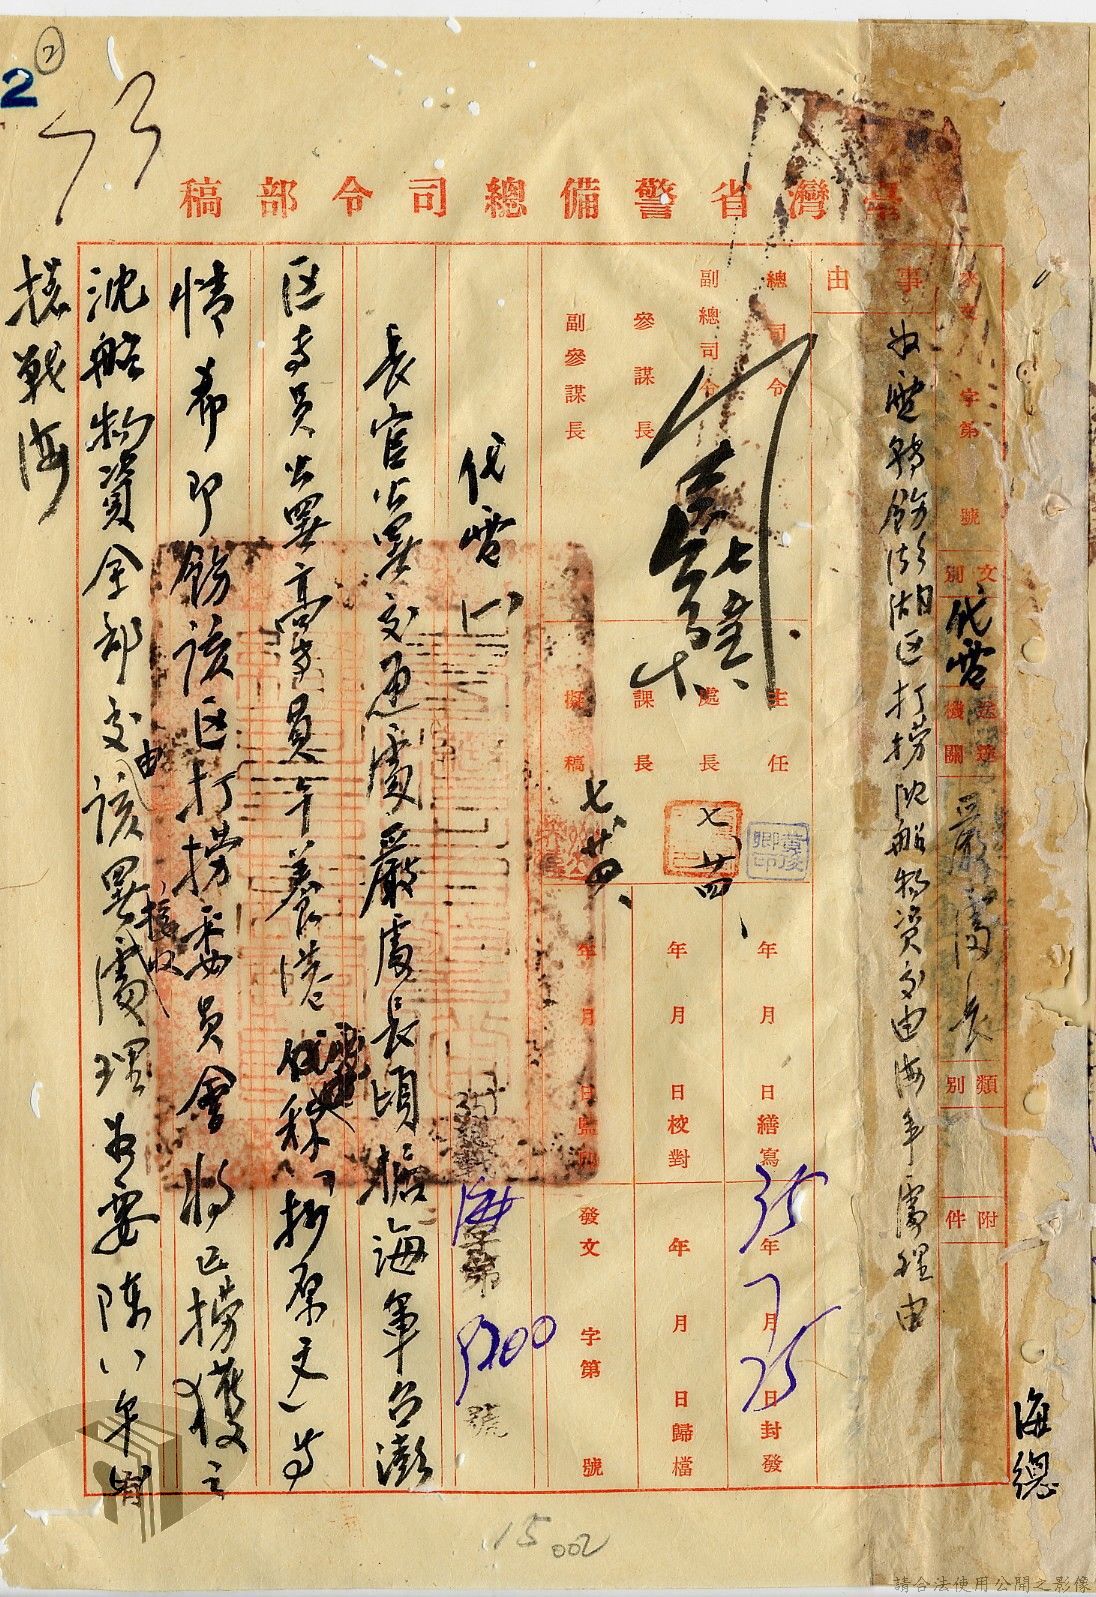 2
2
臺灣省警備總司令部稿
來文 字第 號
文別 代電
送達機關 嚴處長
類別
附件
事由
為電轉飭澎湖區打撈沉船物資交由海軍處理由
總司令
副總司令
參謀長
副參謀長
主任
處長
課長
擬稿
七、廿四
七、廿四、
年 月 日繕寫
年 月 日校對
年 月 日監印
35年7月25日封發
年 月 日歸檔
發文 字第 號
海字第5200號
代電
長官公署交通處嚴處長頃據海軍台澎
区專員公署高專員午養港代電稱(抄原文)等
情希即飭該区打撈委員會將已撈獲之
沈船物資全部交由該署接收處理為要陳
戰海
海總
15
002
請合法使用公開之影像